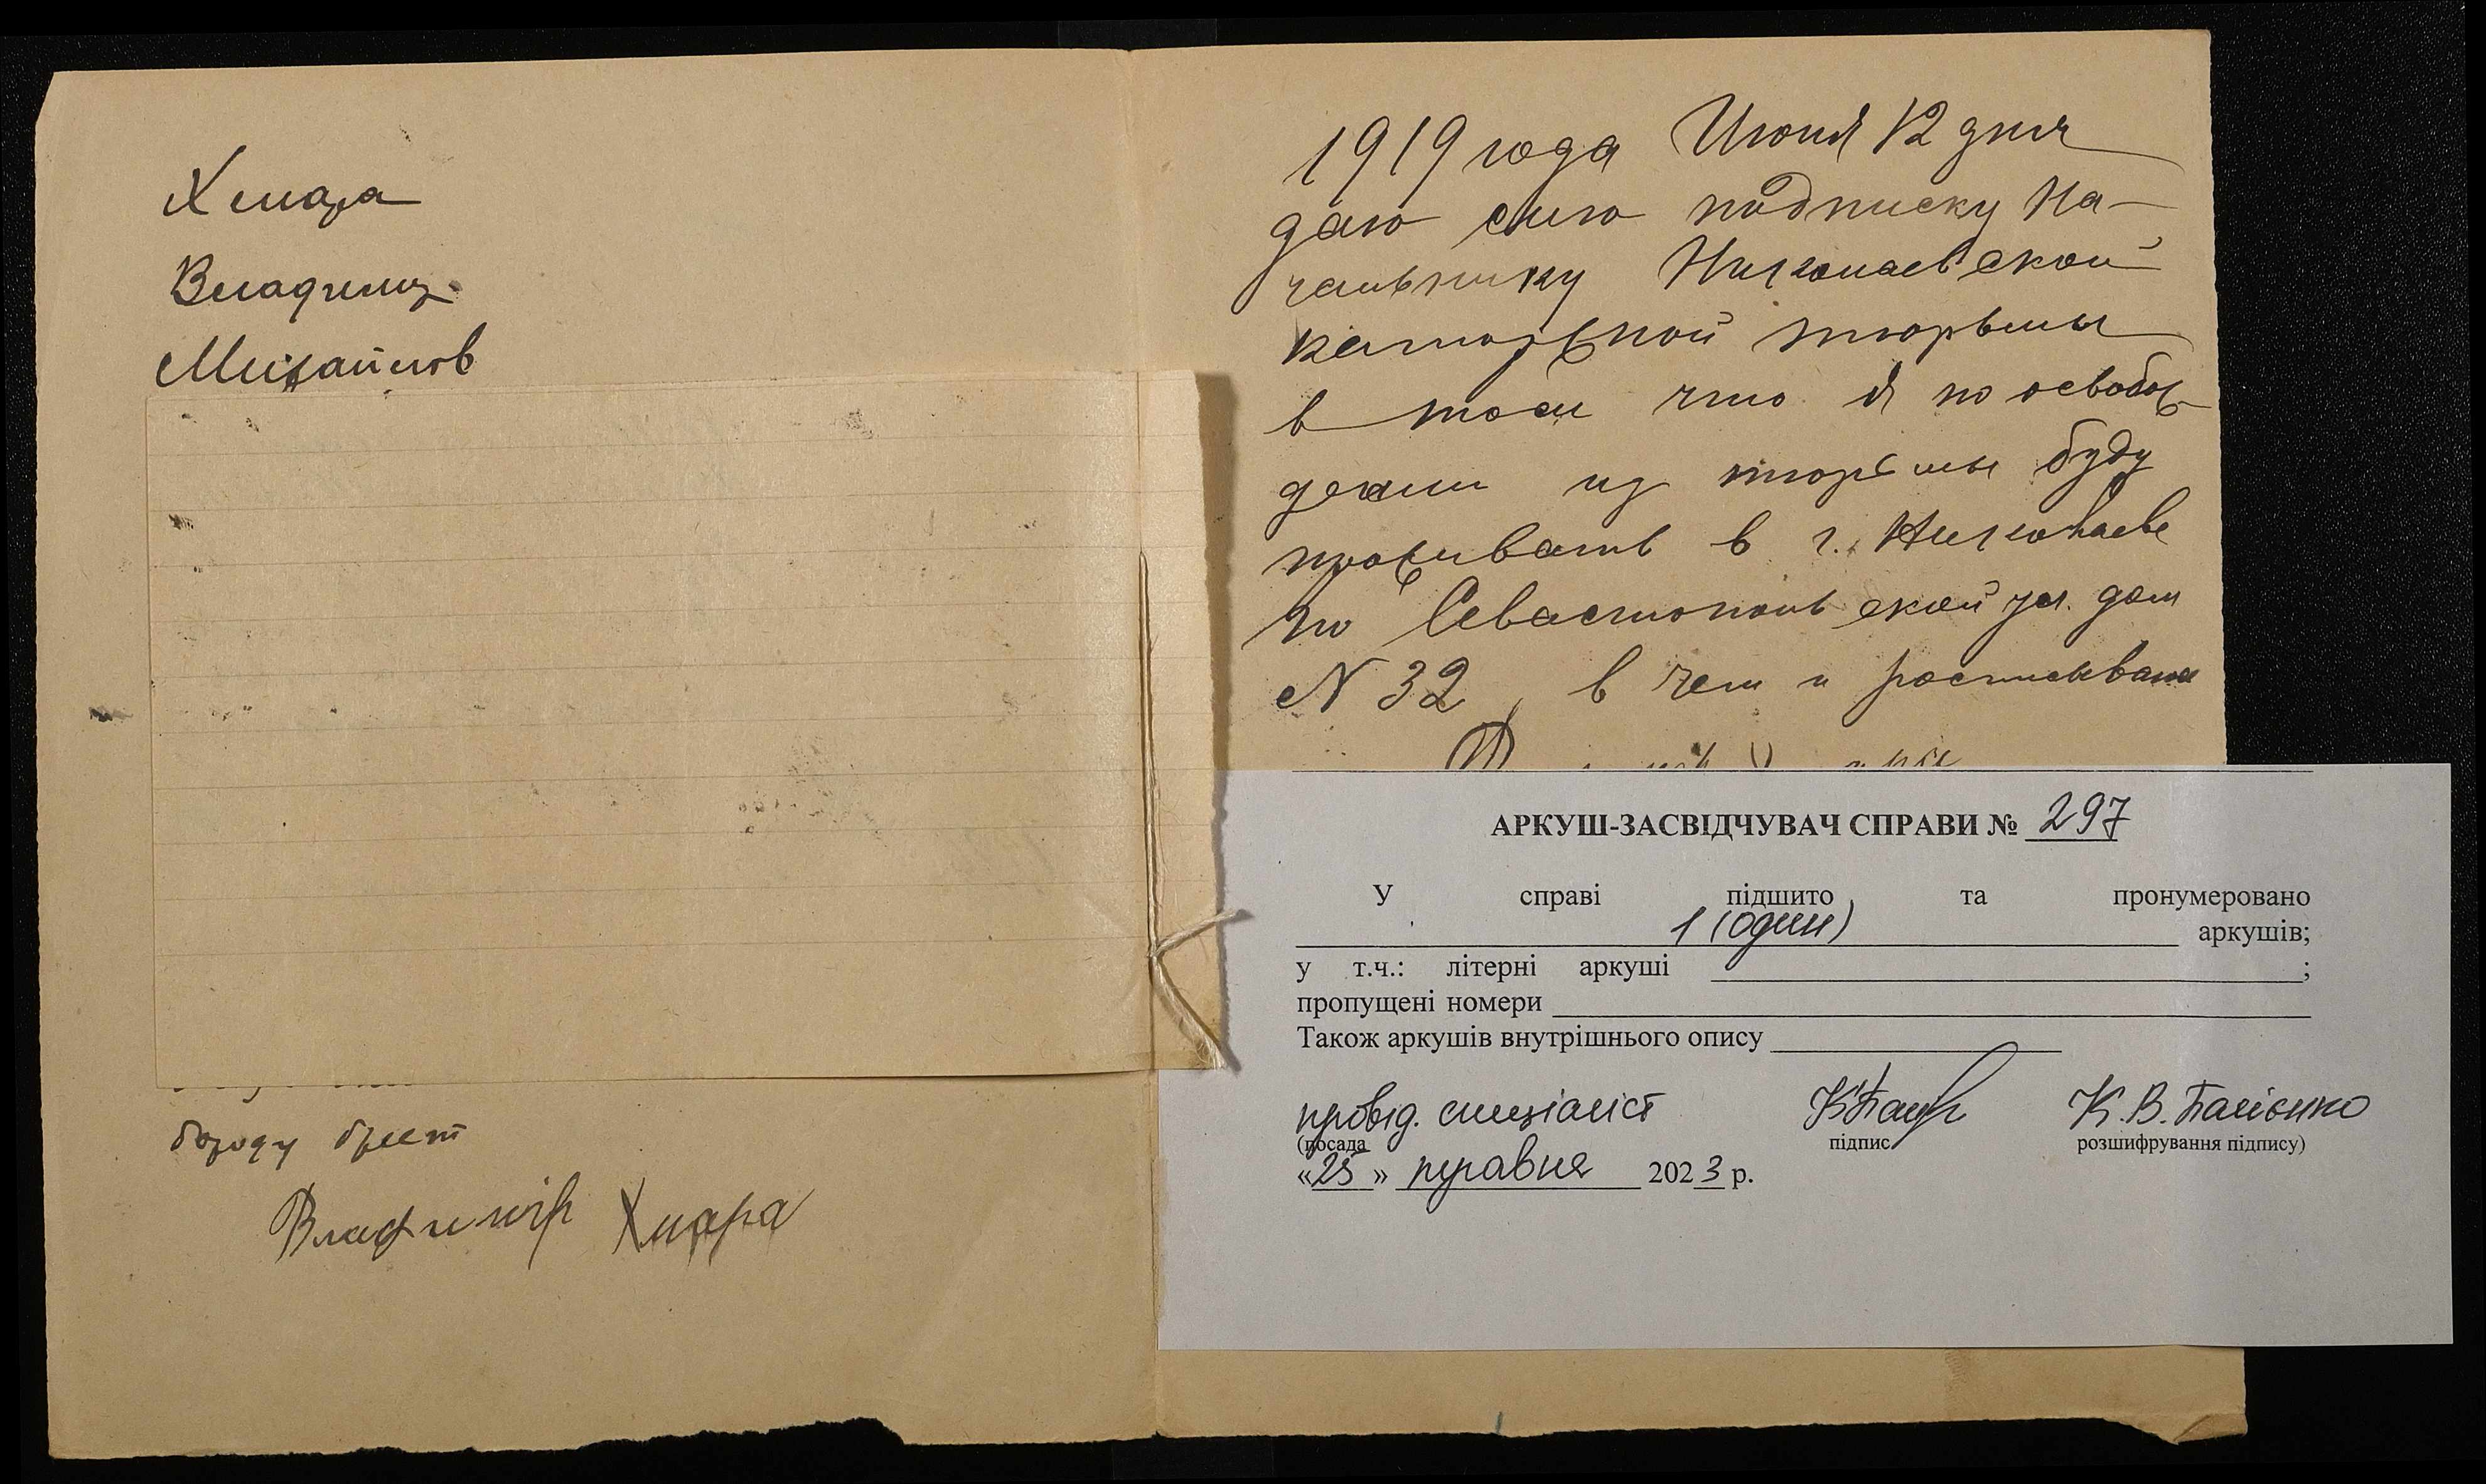 Хмара
Владимир
Михайлов
бороду бреет
Владимір Хмара
1919 года Июня 12 дня
даю сию подписку На-
чальнику Николаевской
каторжной тюрьмы
в том что я по освобож
дении из тюрьмы буду
проживать в г. Николаеве
по Севастопольской ул. дом
N 32, в чем и росписываюсь
АРКУШ-ЗАСВІДЧУВАЧ СПРАВИ № 297
У справі підшито та пронумеровано
1 (один) аркушів;
у т.ч.: літерні аркуші ;
пропущені номери
Також аркушів внутрішнього опису
провід. спеціаліст К.В.
(посада підпис розшифрування підпису)
«25» травня 2023 р.